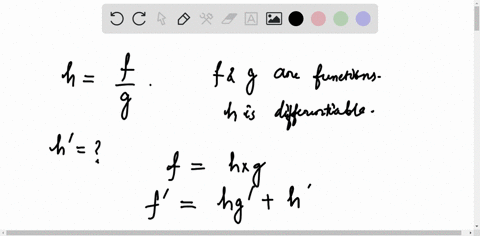 h = f/g .
f & g are functions.
h is differentiable.
h' = ?
f = h×g
f' = hg' + h'